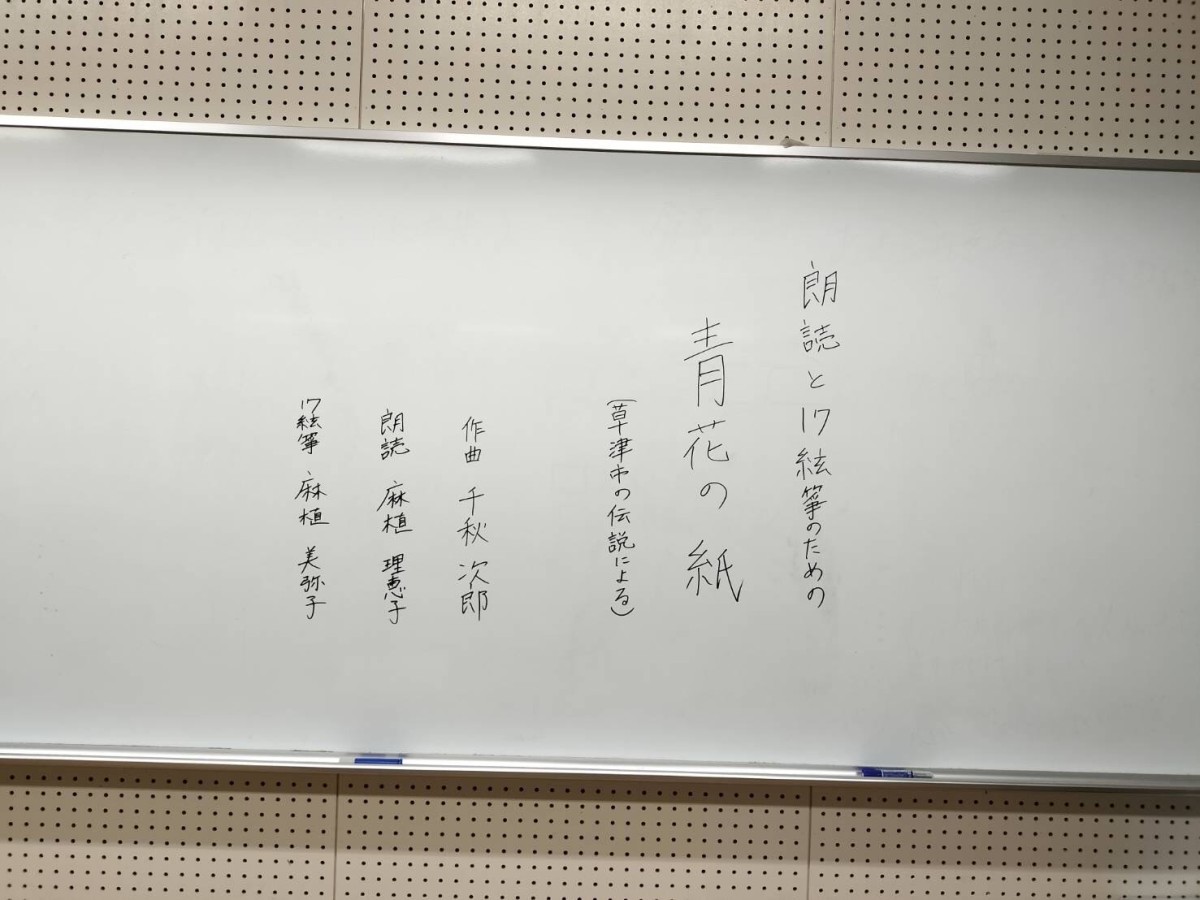 朗読と17絃箏のための
青花の紙
(草津市の伝説による)
作曲 千秋 次郎
朗読 麻植 理恵子
17絃箏 麻植 美弥子